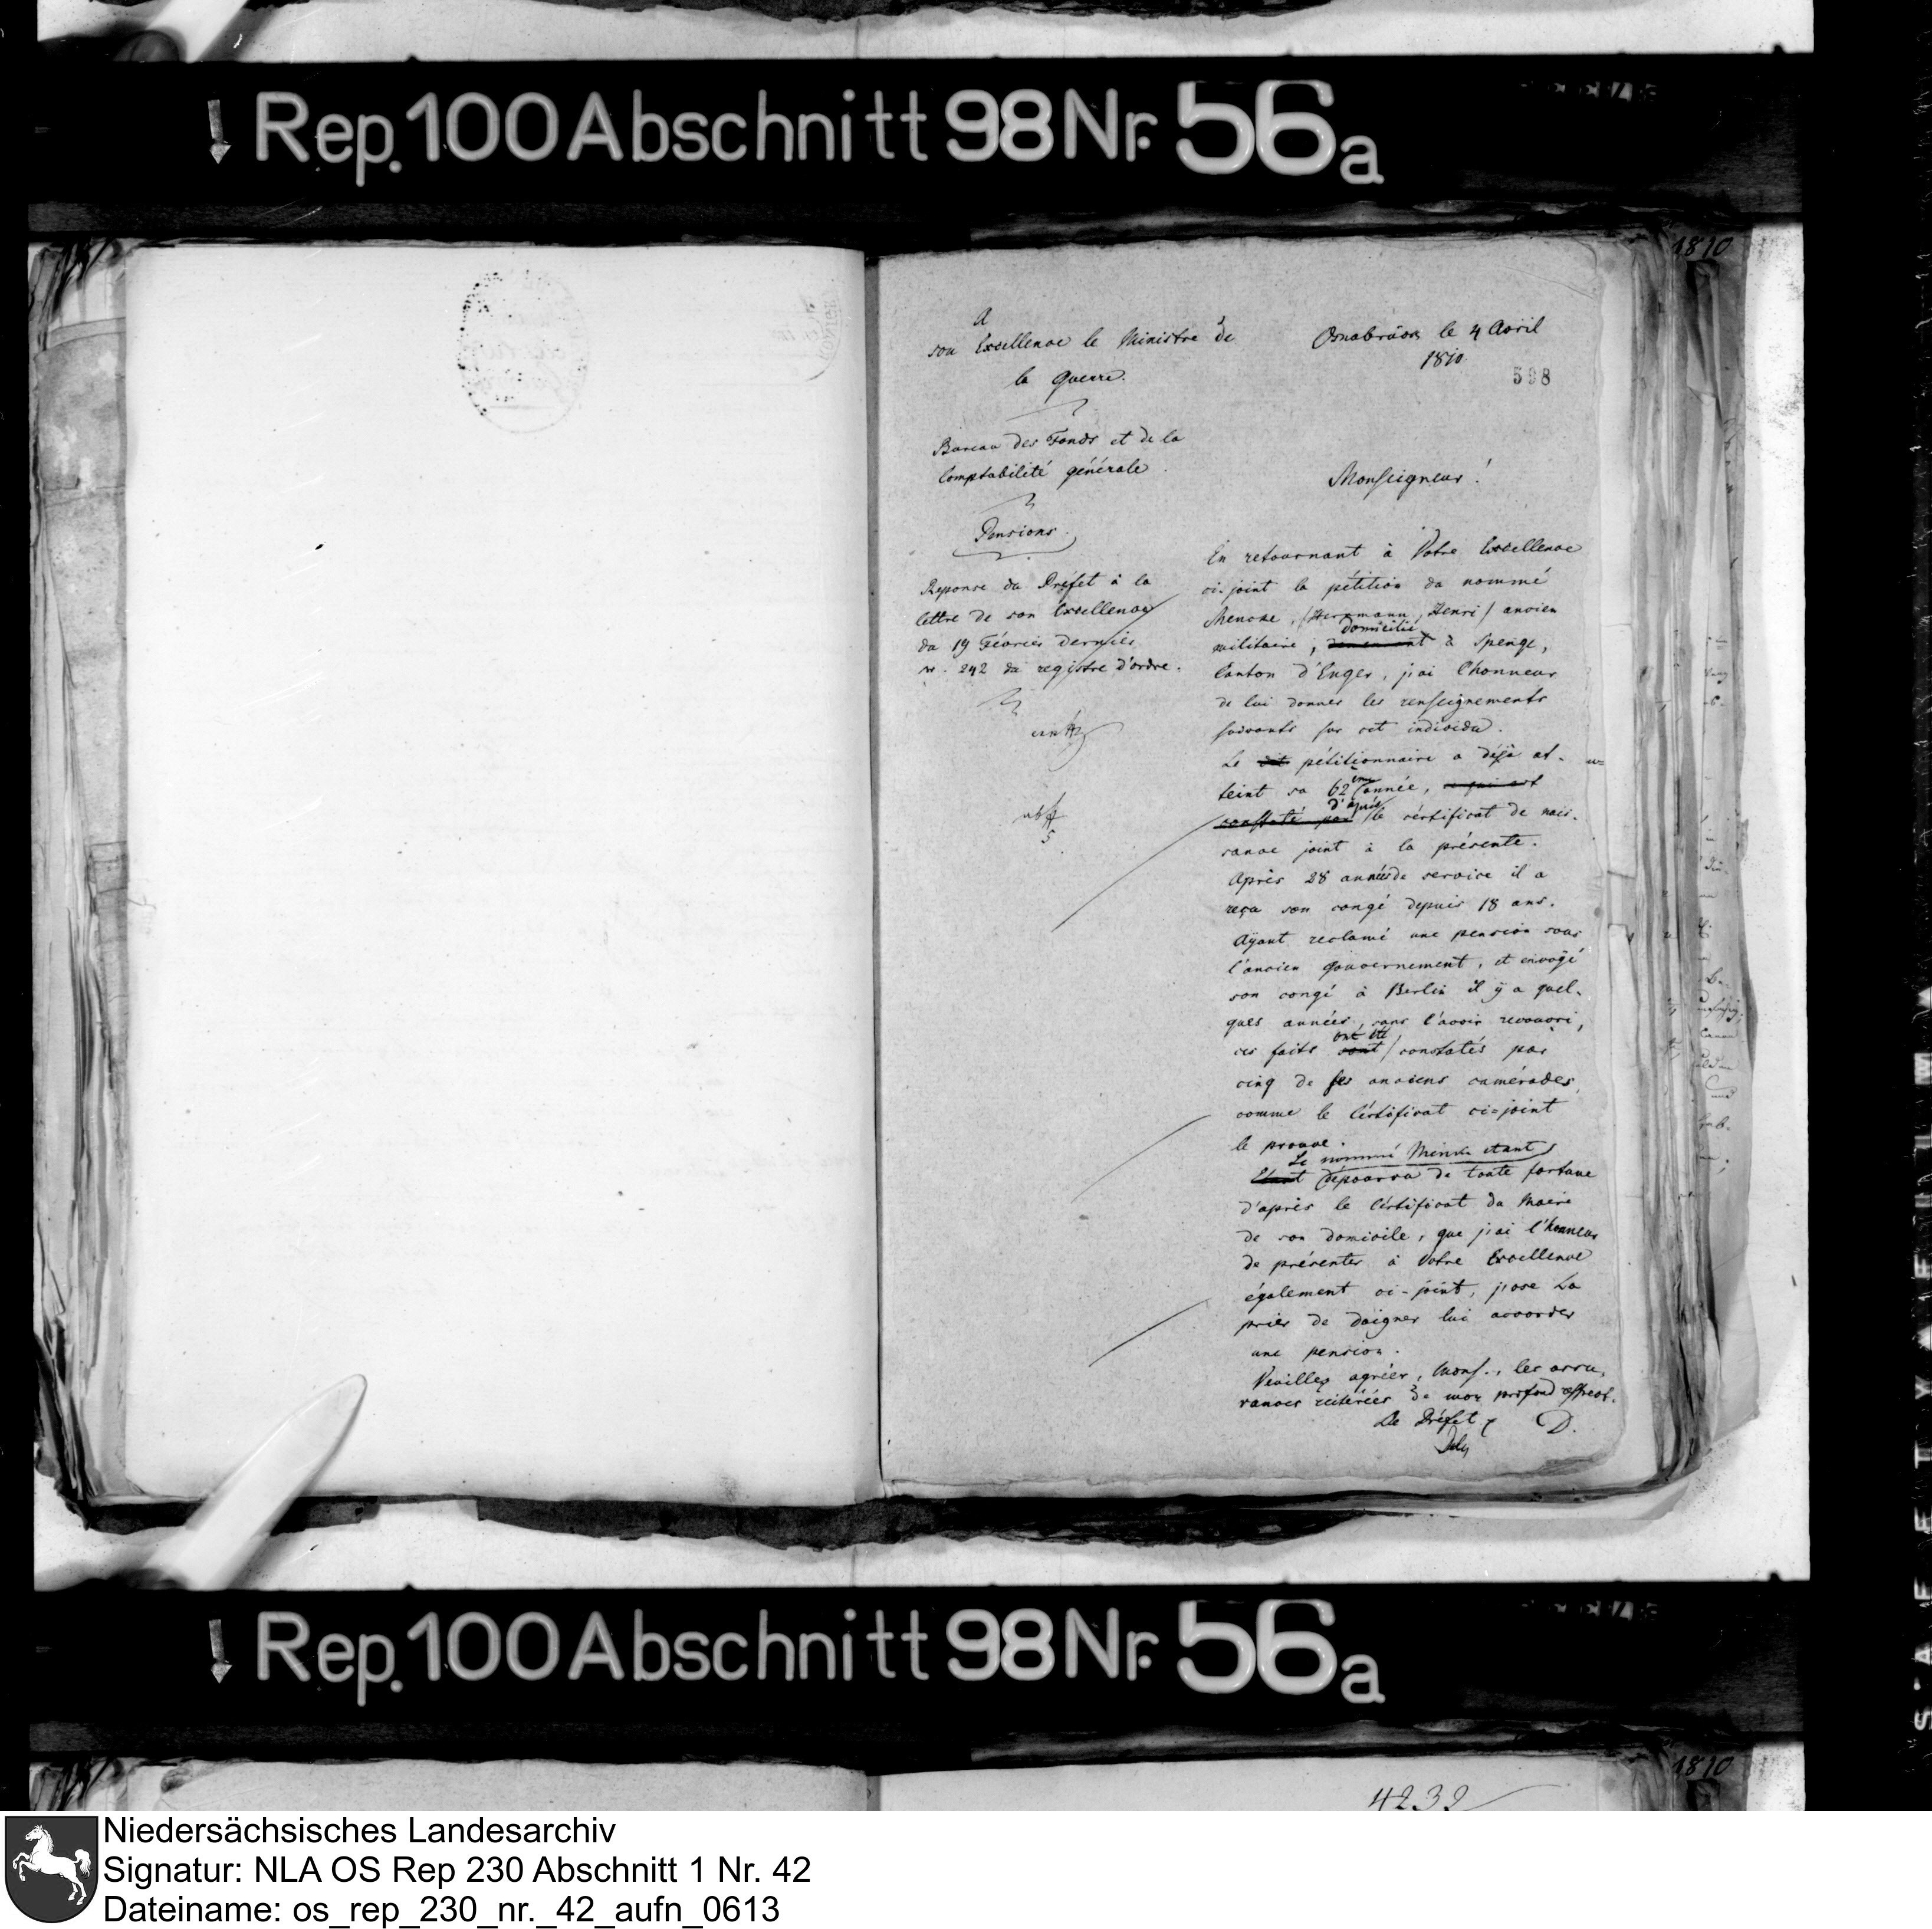 Rep. 100 Abschnitt 98 Nr. 56a
1810
A
son Excellence le Ministre de
la Guerre.
Osnabrück le 4 Avril
1810.
598
Bureau des Fonds et de la
Comptabilité générale.
Pensions.
Reponse du Préfet à la
lettre de son Excellence
du 19 Février dernier
nr. 242 du registre d'ordre.
Monseigneur!
En retournant à Votre Excellence
ci-joint la pétition du nommé
Mencke, (Herrmann, Henri) ancien
domicilié
militaire, demeurant à Spenge,
Canton d'Enger, j'ai l'honneur
de lui donner les renseignements
suivants sur cet individu.
Le dit pétitionnaire a déjà at-
teint sa 62 ème année, ce qui est
d'après
constaté par le cértificat de nais-
sance joint à la présente.
Après 28 années de service il a
reçu son congé depuis 18 ans.
Aÿant reclamé une pension sous
l'ancien gouvernement, et envoÿé
son congé à Berlin il ÿ a quel-
ques années, sans l'avoir recouvri,
ont été
ces faits sont constatés par
cinq de ses anciens camérades,
comme le Cértificat ci-joint
le prouve.
Le nommé Mencke étant
Etant dépourvu de toute fortune
d'après le Cértificat du Maire
de son domicile, que j'ai l'honneur
de présenter à Votre Excellence
également ci-joint, j'ose La
prier de daigner lui accorder
une pension.
Veuillez agréer, Mons., les assu-
rances reitérées de mon profond respect.
Le Préfet D.
Rep. 100 Abschnitt 98 Nr. 56a
1810
4232
Niedersächsisches Landesarchiv
Signatur: NLA OS Rep 230 Abschnitt 1 Nr. 42
Dateiname: os_rep_230_nr._42_aufn_0613